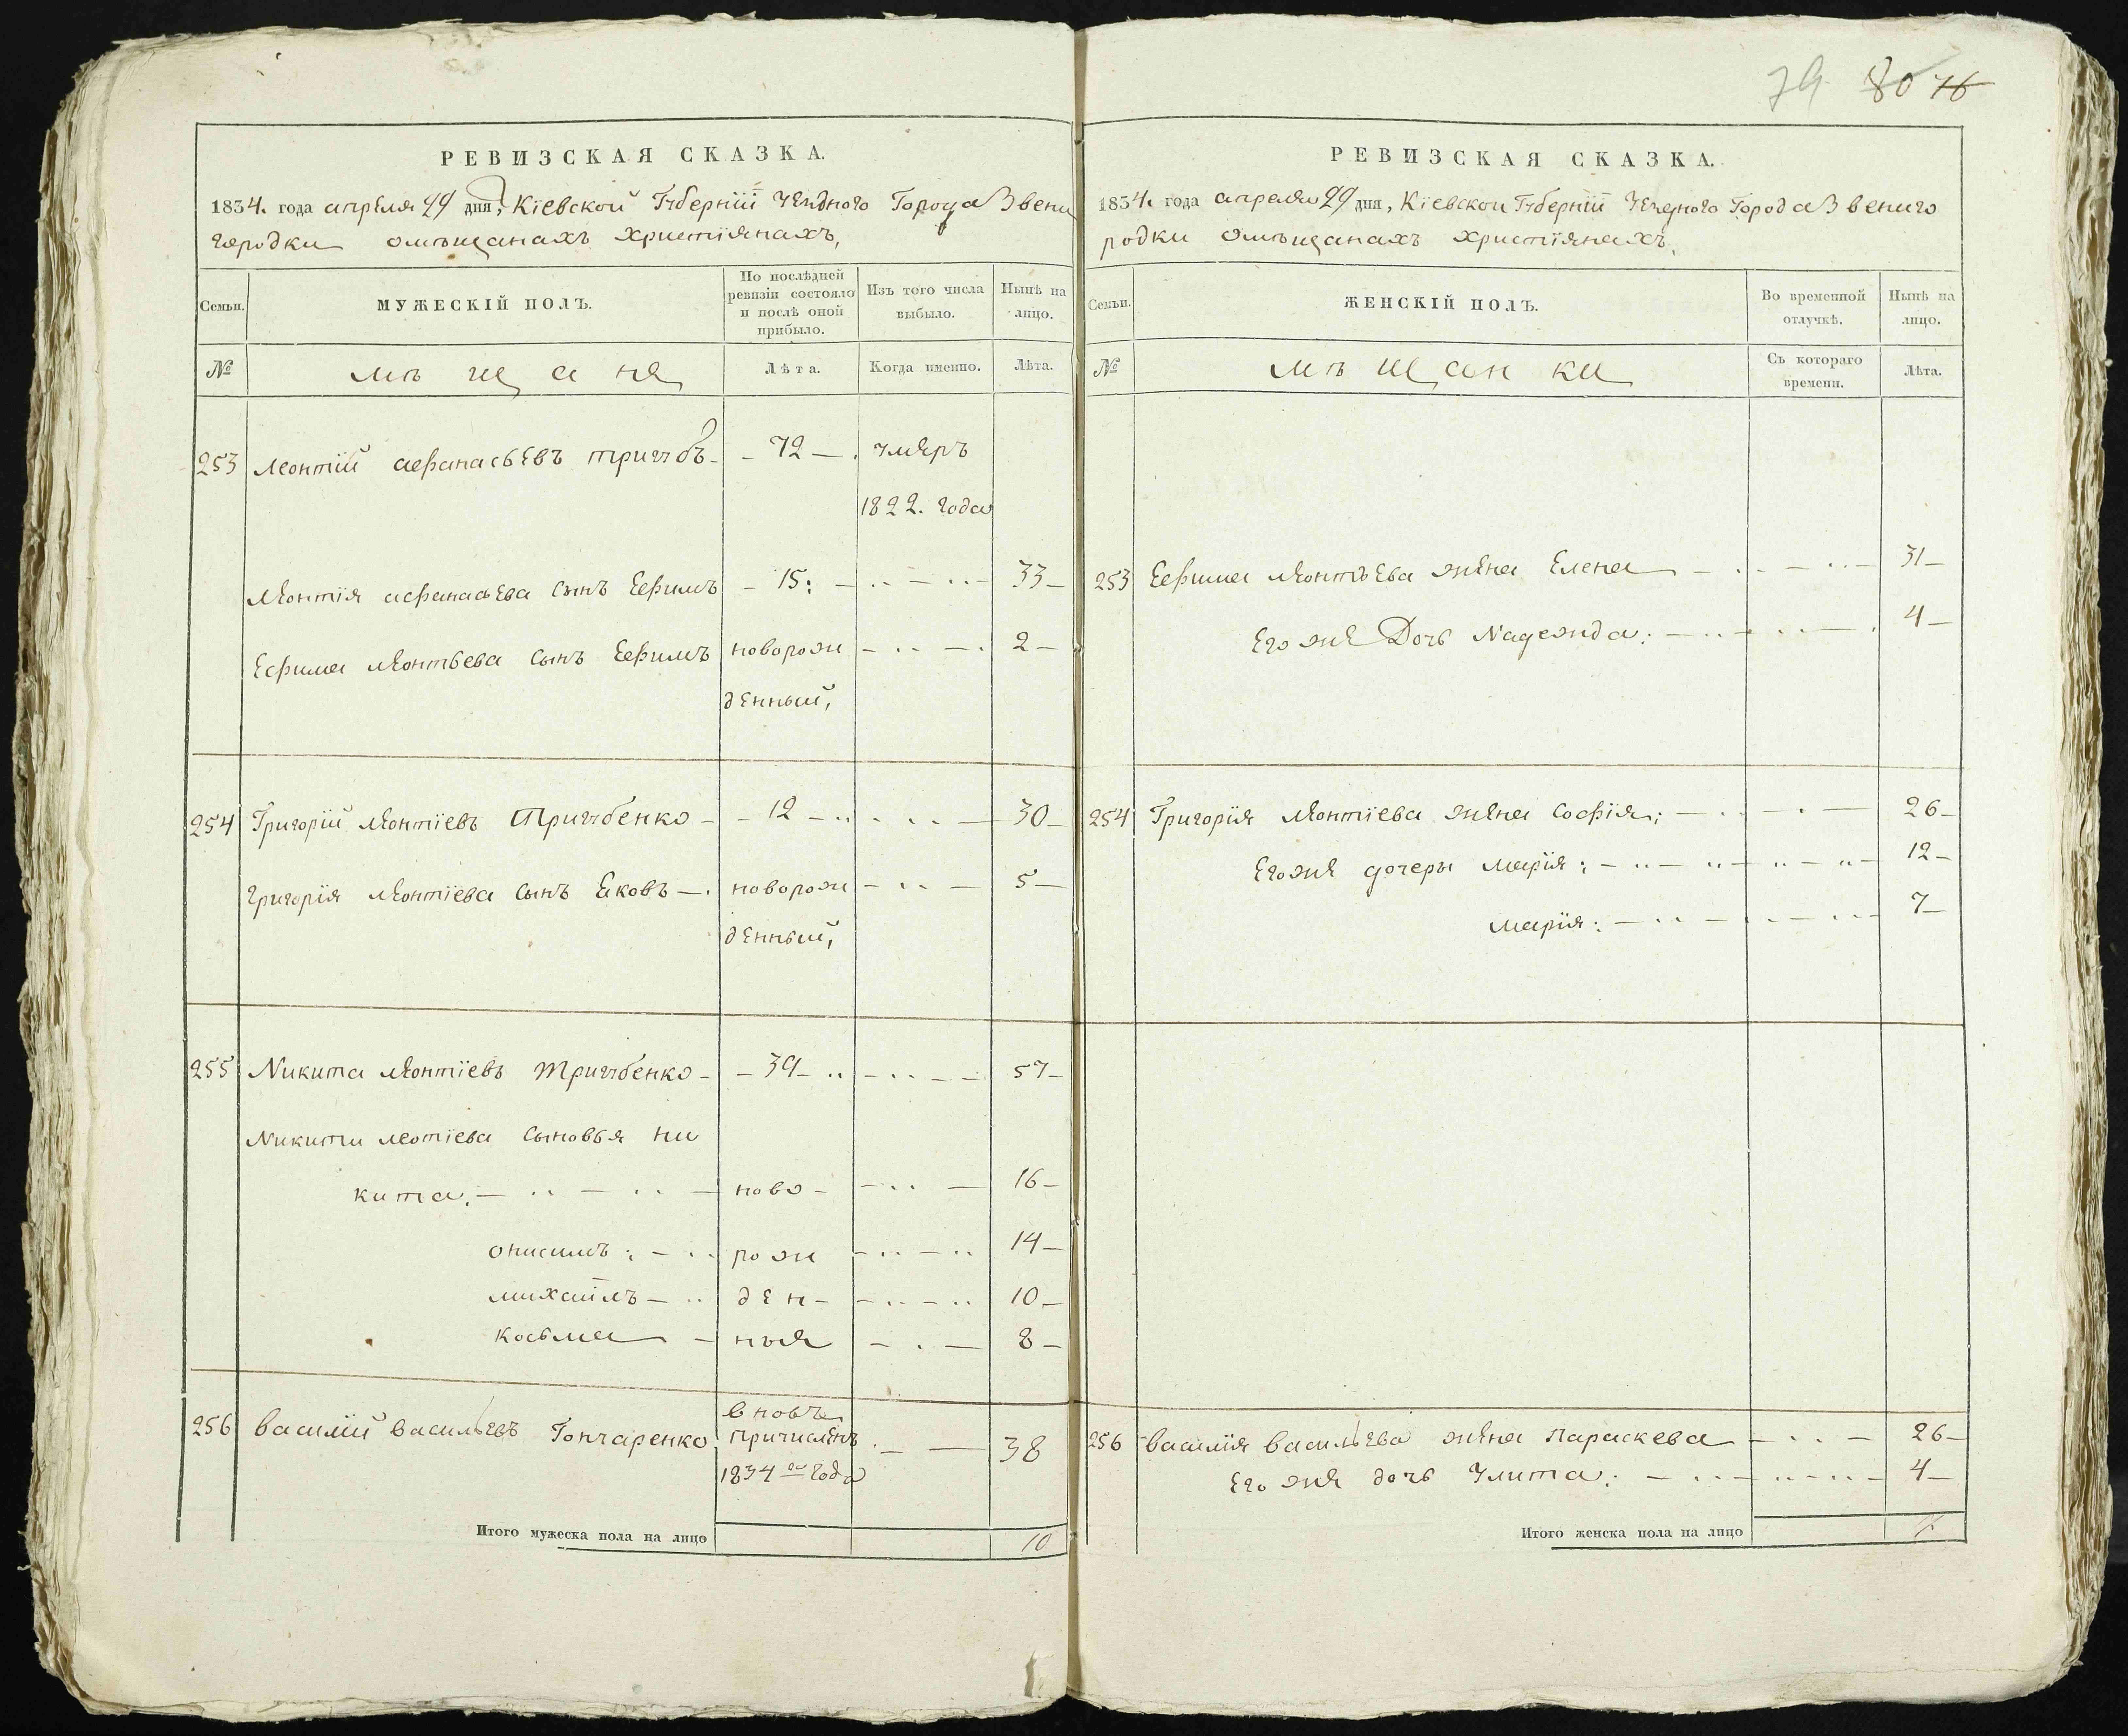 79 80 76
РЕВИЗСКАЯ СКАЗКА.
1834. года апреля 29 дня, Кіевской Губерніи Уезднаго Города Звени
городки омѣщанахъ христіянахъ,
Семьи.
МУЖЕСКІЙ ПОЛЪ.
По послѣдней
ревизіи состояло
и послѣ оной
прибыло.
Изъ того числа
выбыло.
Нынѣ на
лицо.
№
мѣщане
Лѣта.
Когда именно.
Лѣта.
253 Леонтій афанасьевъ тригубъ - 72 - умеръ
1822. года
Леонтія афанасьева сынъ Ефимъ - 15: - 33 -
Ефима леонтьева сынъ Ефимъ новорож - 2 -
денный,
254 Григорій леонтіевъ Тригубенко - 12 - 30 -
Григорія леонтіева сынъ Ековъ - новорож - 5 -
денный,
255 Никита леонтіевъ Тригубенко - 39 - 57 -
Никити леотіева сыновья ни
кита. - ново - 16 -
онисимъ: - рож - 14 -
михаилъ - ден - 10 -
косьма - ныя - 8 -
256 василій васильевъ Гончаренко вновь
причисленъ - 38
1834го года
Итого мужеска пола на лицо 10
РЕВИЗСКАЯ СКАЗКА.
1834. года апреля 29 дня, Кіевской Губерніи Уезднаго Города Звениго
родки омѣщанахъ христіянахъ,
Семьи.
ЖЕНСКІЙ ПОЛЪ.
Во временной
отлучкѣ.
Нынѣ на
лицо.
№
мѣщанки
Съ котораго
времени.
Лѣта.
253 Ефима леонтьева жена Елена - 31 -
Его же Дочь Надежда: - 4 -
254 Григорія леонтіева жена софія; - 26 -
Его же дочеры марія: - 12 -
марія: - 7 -
256 василія васильева жена Параскева - 26 -
Его же дочь Улита: - 4 -
Итого женска пола на лицо 7